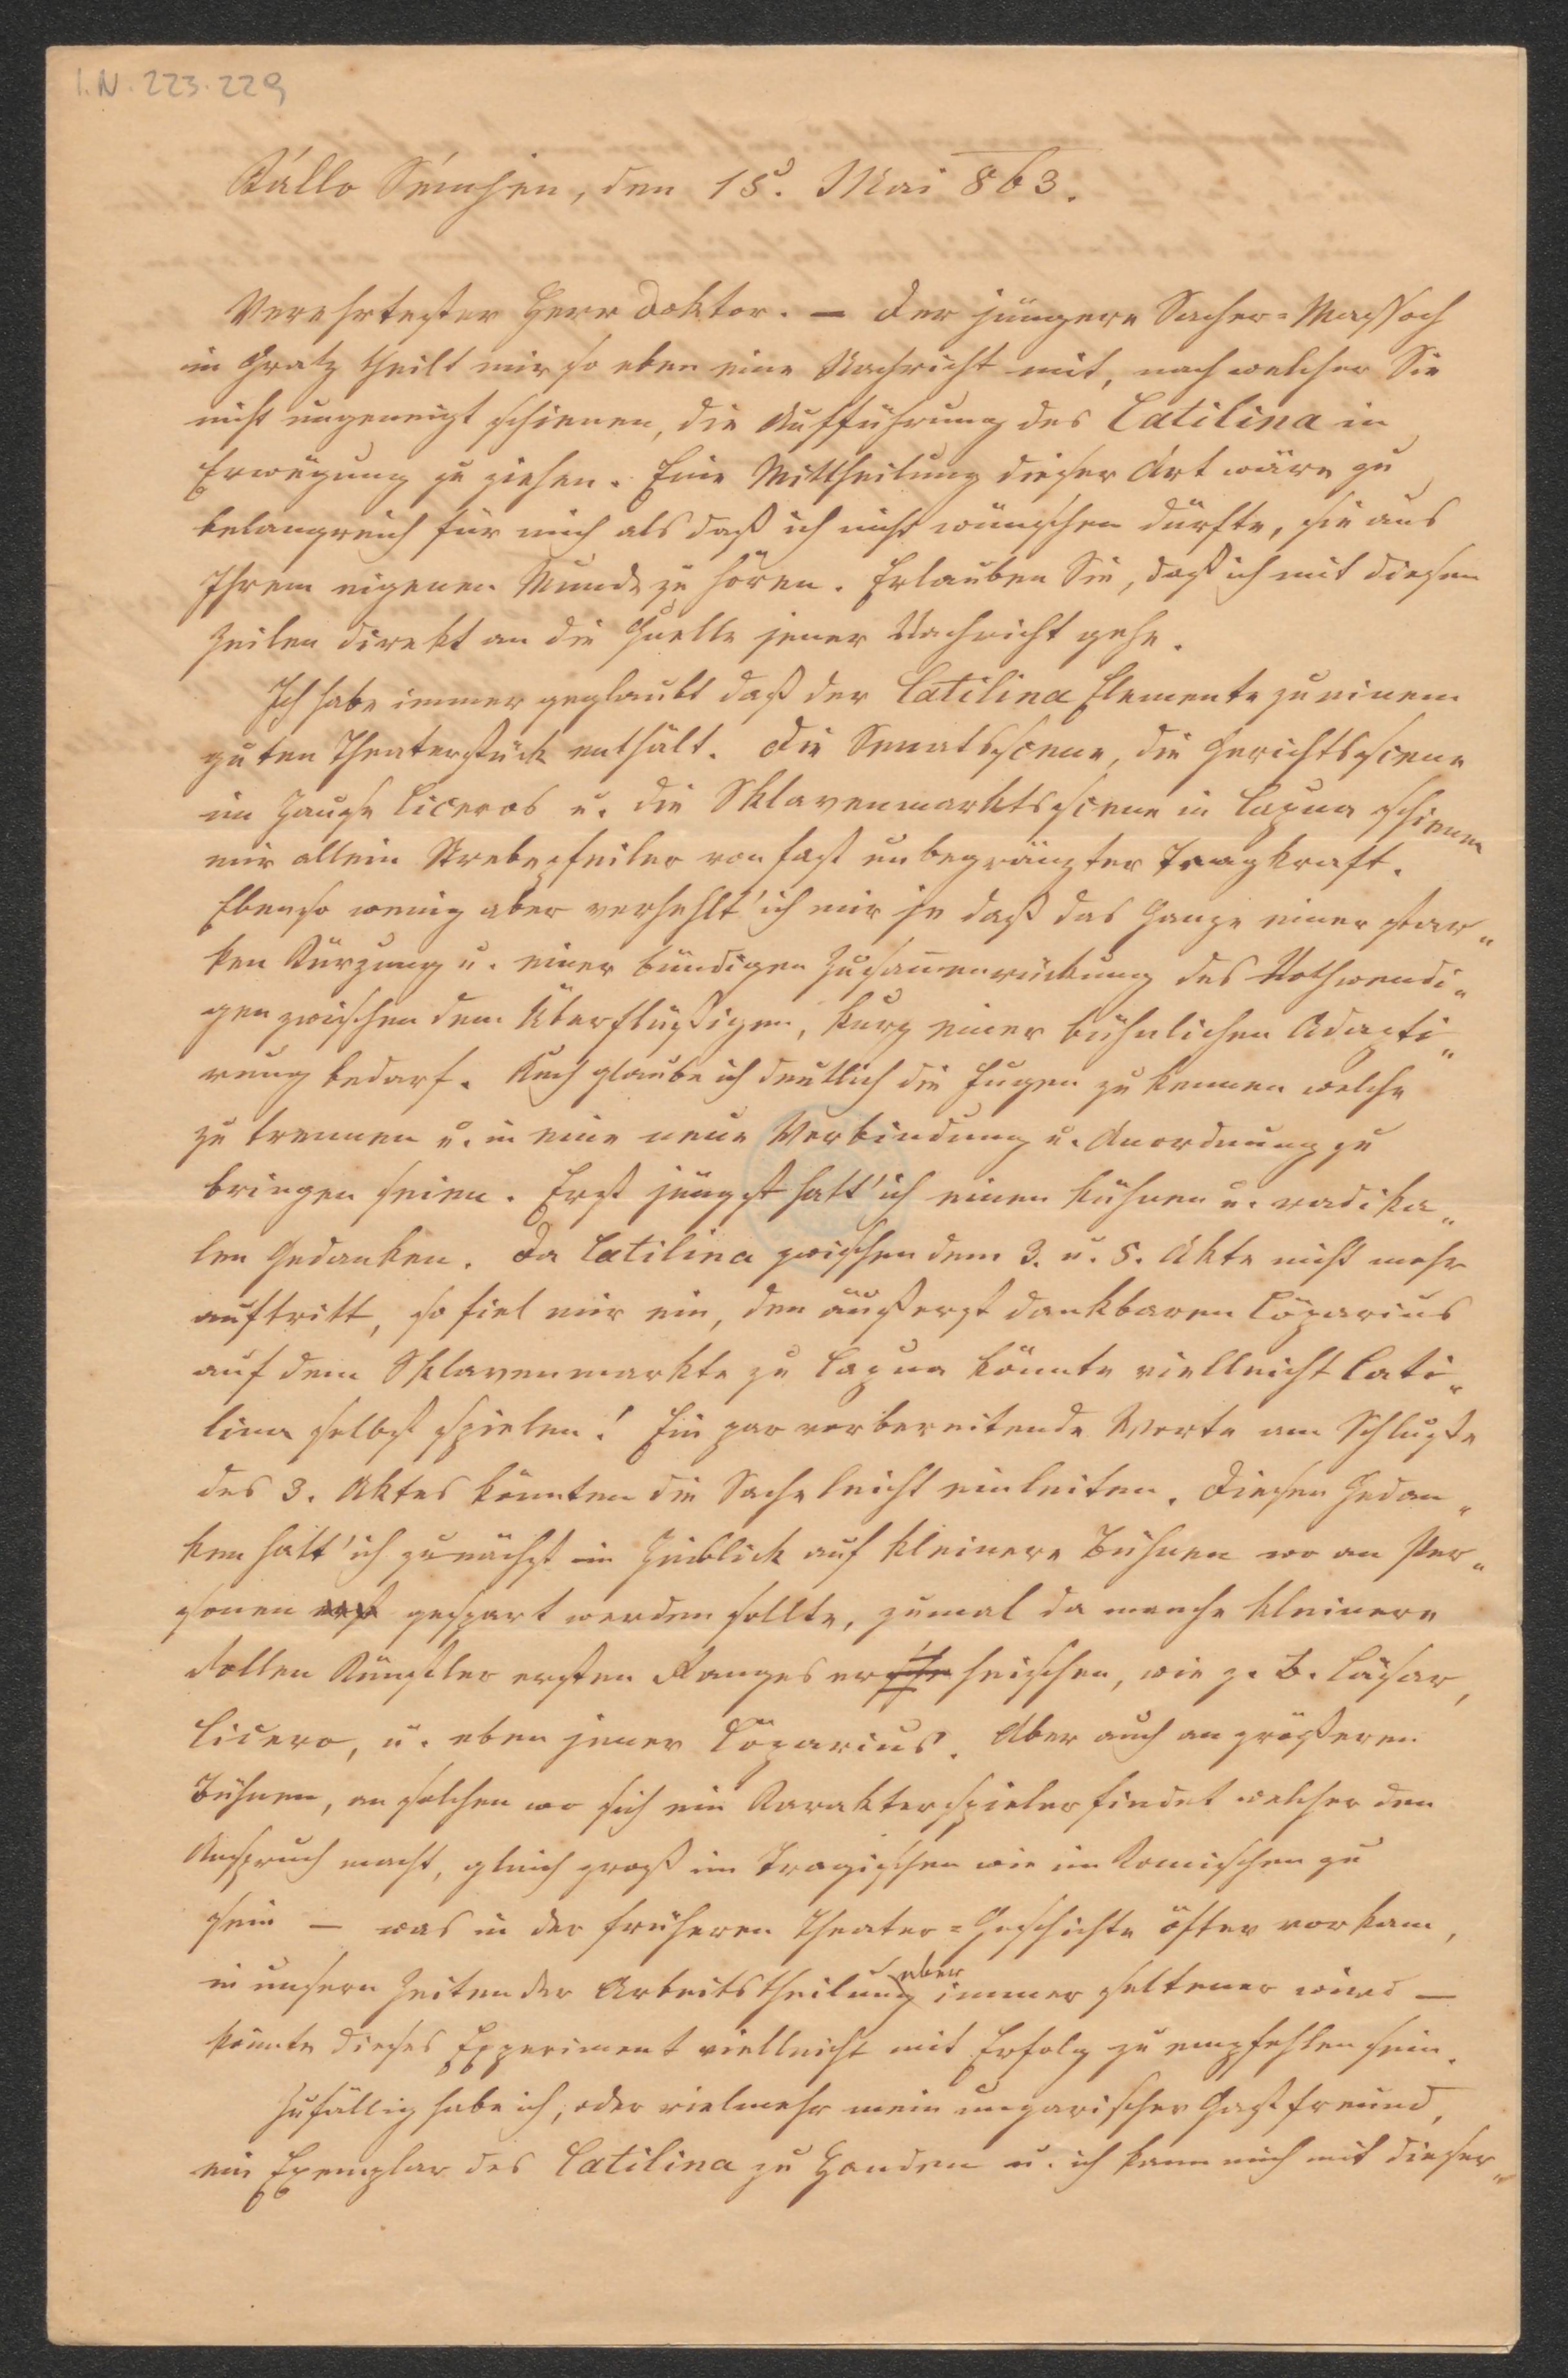 I.N. 223.229
Kálló Sémjén, den 15. Mai 863.
Verehrtester Herr Doktor. — Der jüngere Sacher-Massoch
in Gratz theilt mir so eben eine Nachricht mit, nach welcher Sie
nicht ungeneigt schienen, die Aufführung des Catilina in
Erwägung zu ziehen. Eine Mittheilung dieser Art wäre zu
belangreich für mich als daß ich nicht wünschen dürfte, sie aus
Ihrem eigenen Munde zu hören. Erlauben Sie, daß ich mit diesen
Zeilen direkt an die Quelle jener Nachricht gehe.
Ich habe immer geglaubt daß der Catilina Elemente zu einem
guten Theaterstück enthält. Die Senatsscene, die Gerichtsscene
im Hause Ciceros u. die Sklavenmarktsscene in Capua schienen
mir allein Strebepfeiler von fast unbegränzter Tragkraft.
Ebenso wenig aber verhehlt' ich mir je daß das Ganze einer star„
ken Kürzung u. einer bündigen Zusam̄enrückung des Nothwendi„
gen zwischen dem Überflüßigen, kurz einer bühnlichen Adapti„
rung bedarf. Auch glaube ich deutlich die Fugen zu kennen welche
zu trennen u. in eine neue Verbindung u. Anordnung zu
bringen seien. Erst jüngst hatt' ich einen kühnen u. radika„
len Gedanken. Da Catilina zwischen dem 3. u. 5. Akte nicht mehr
auftritt, so fiel mir ein, den äußerst dankbaren Cöparius
auf dem Sklavenmarkte zu Capua könnte vielleicht Cati„
lina selbst spielen! Ein par vorbereitende Worte am Schluße
des 3. Aktes könnten die Sache leicht einleiten. Diesen Gedan„
ken hatt' ich zunächst im Hinblick auf kleinere Bühnen wo an Per„
sonen gespart werden sollte, zumal da manche kleinere
Rollen Künstler ersten Ranges erheischen, wie z. B. Cäsar,
Cicero, u. eben jener Cöparius. Aber auch an größeren
Bühnen, an solchen wo sich ein Karakterspieler findet welcher den
Anspruch macht, gleich groß im Tragischen wie im Komischen zu
sein — was in der früheren Theater-Geschichte öfter vorkam,
in unsern Zeiten der Arbeitstheilung aber immer seltener wird —
könnte dieses Experiment vielleicht mit Erfolg zu empfehlen sein.
Zufällig habe ich, oder vielmehr mein ungarischer Gastfreund,
ein Exemplar des Catilina zu Handen u. ich kann mich mit dieser„